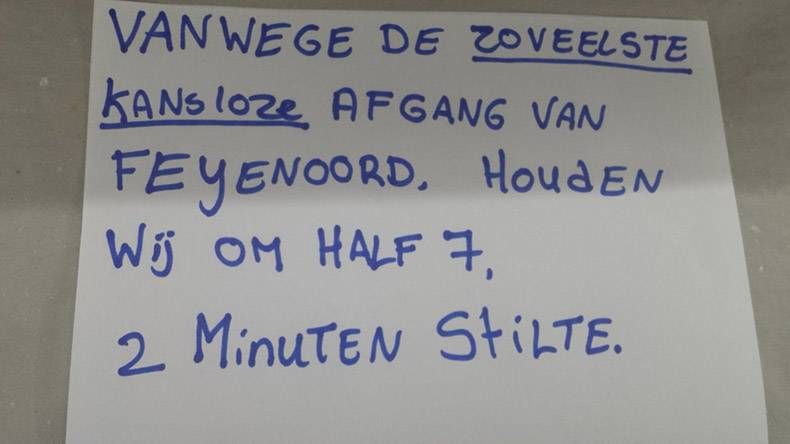 VANWEGE DE ZOVEELSTE
KANSLOZE AFGANG VAN
FEYENOORD. HOUDEN
Wij OM HALF 7,
2 MinuTEN StiLTE.